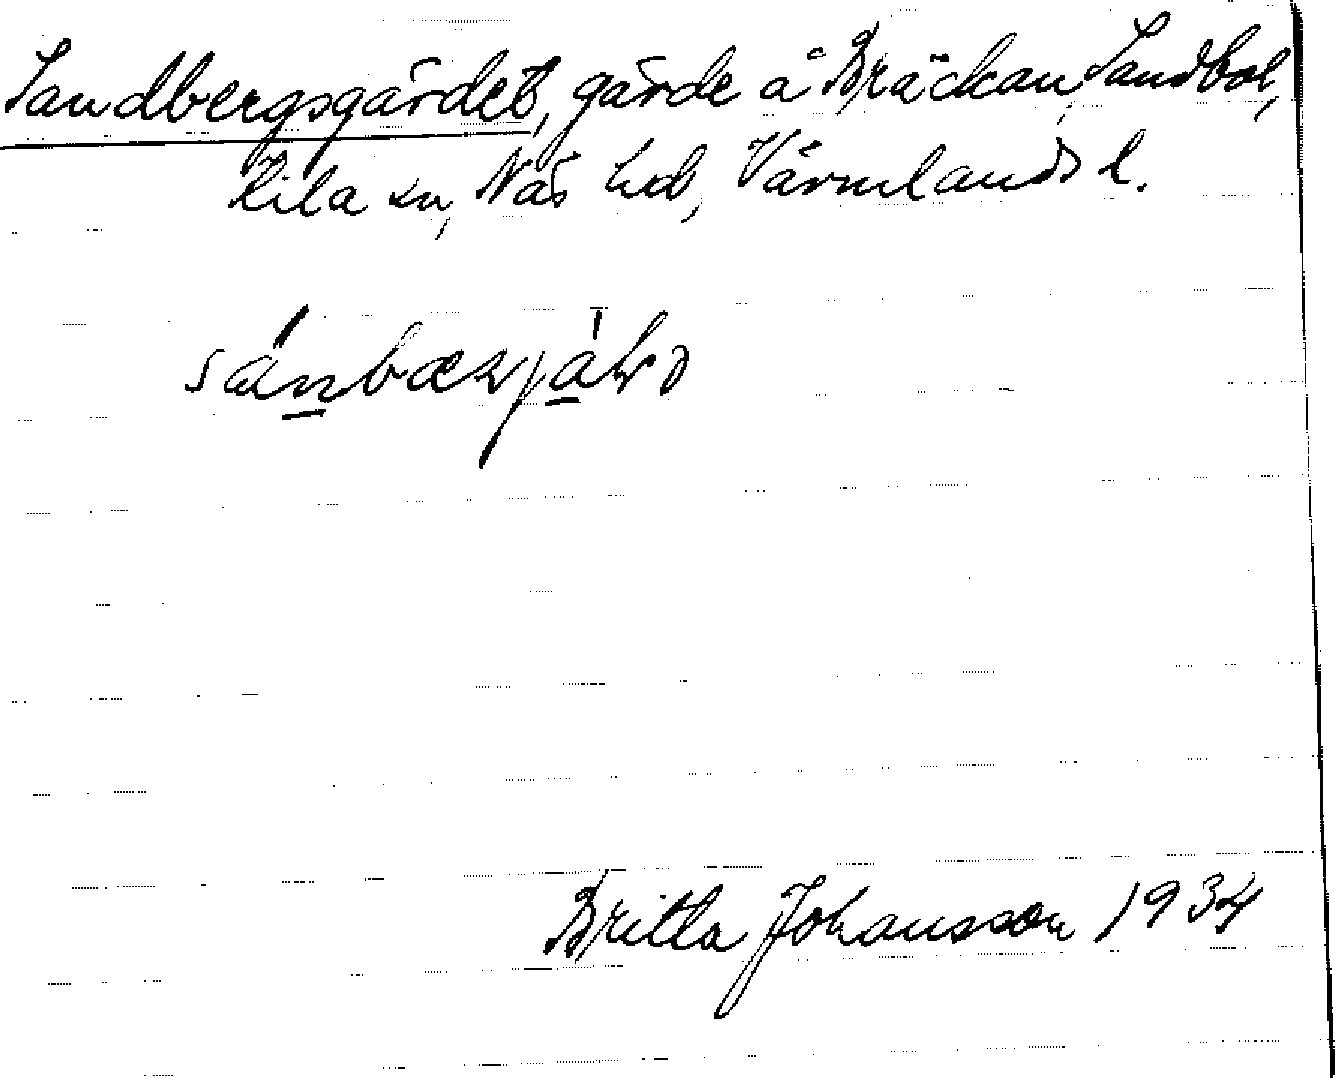 Sandbergsgärdet, gärde å Bräckan, Sandbol,
Kila sn, Näs hd, Värmlands l.
Britta Johansson 1934